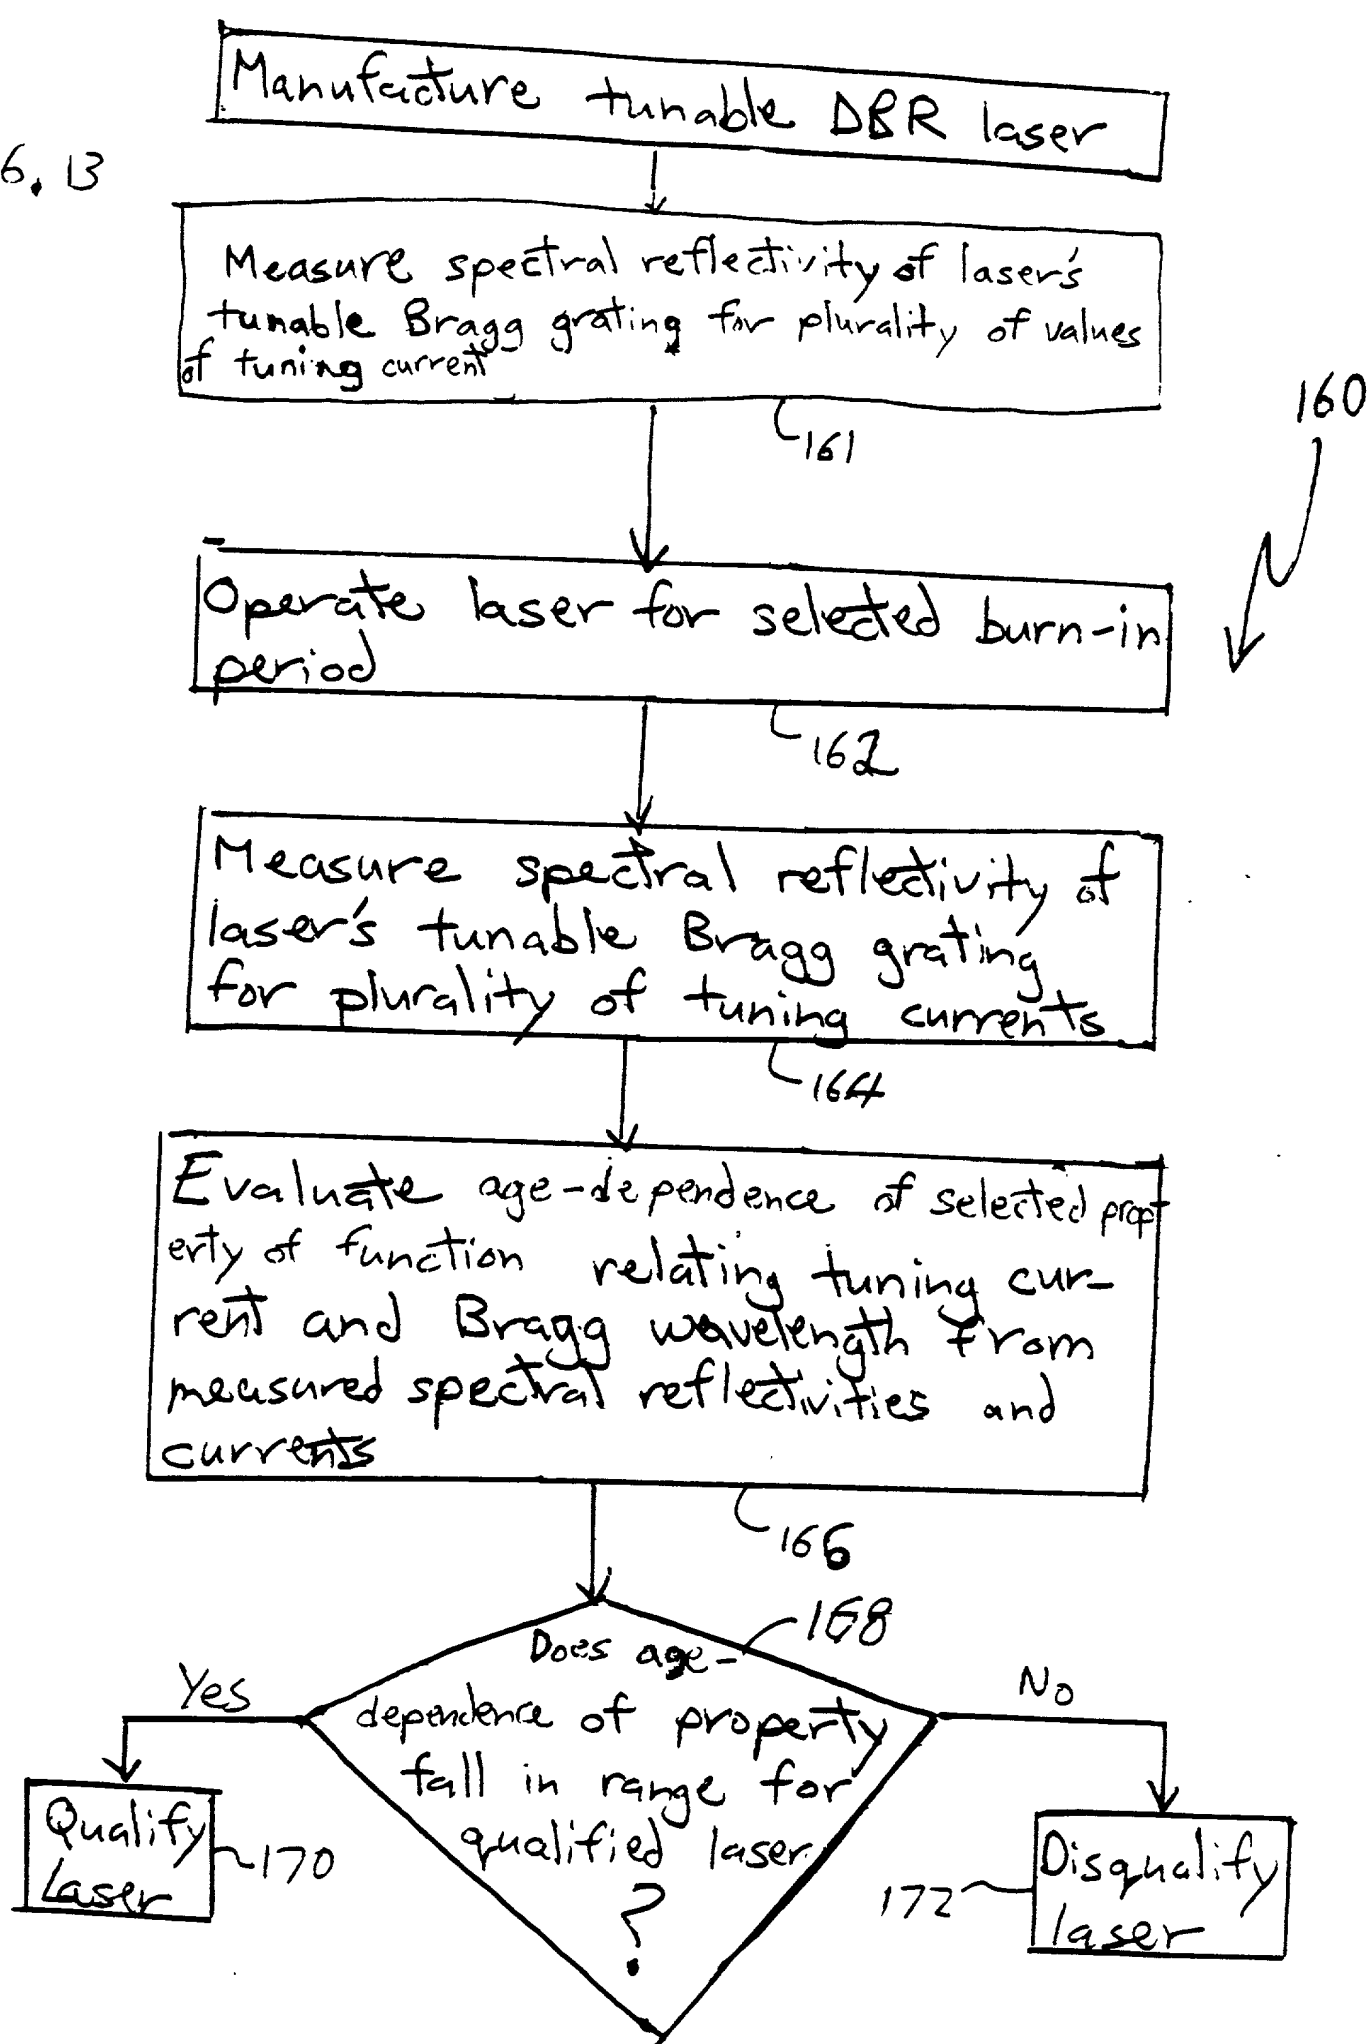 Manufacture tunable DBR laser
6. 13
Measure spectral reflectivity of laser's
tunable Bragg grating for plurality of values
of tuning current
161
160
Operate laser for selected burn-in
period
162
Measure spectral reflectivity of
laser's tunable Bragg grating
for plurality of tuning currents
164
Evaluate age-dependence of selected prop
erty of function relating tuning cur-
rent and Bragg wavelength from
measured spectral reflectivities and
currents
166
168
Does age-
dependence of property
fall in range for
qualified laser
?
Yes
No
Qualify
Laser
170
Disqualify
laser
172